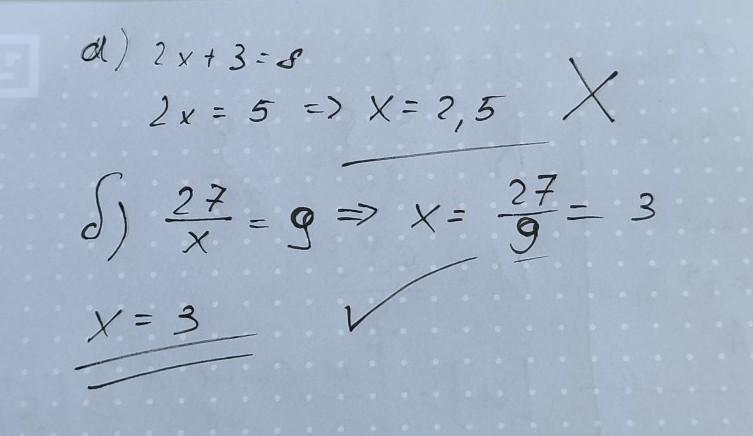 а) 2x + 3 = 8
2x = 5 => x = 2,5 X
б) 27/x = 9 => x = 27/9 = 3
x = 3 ✓